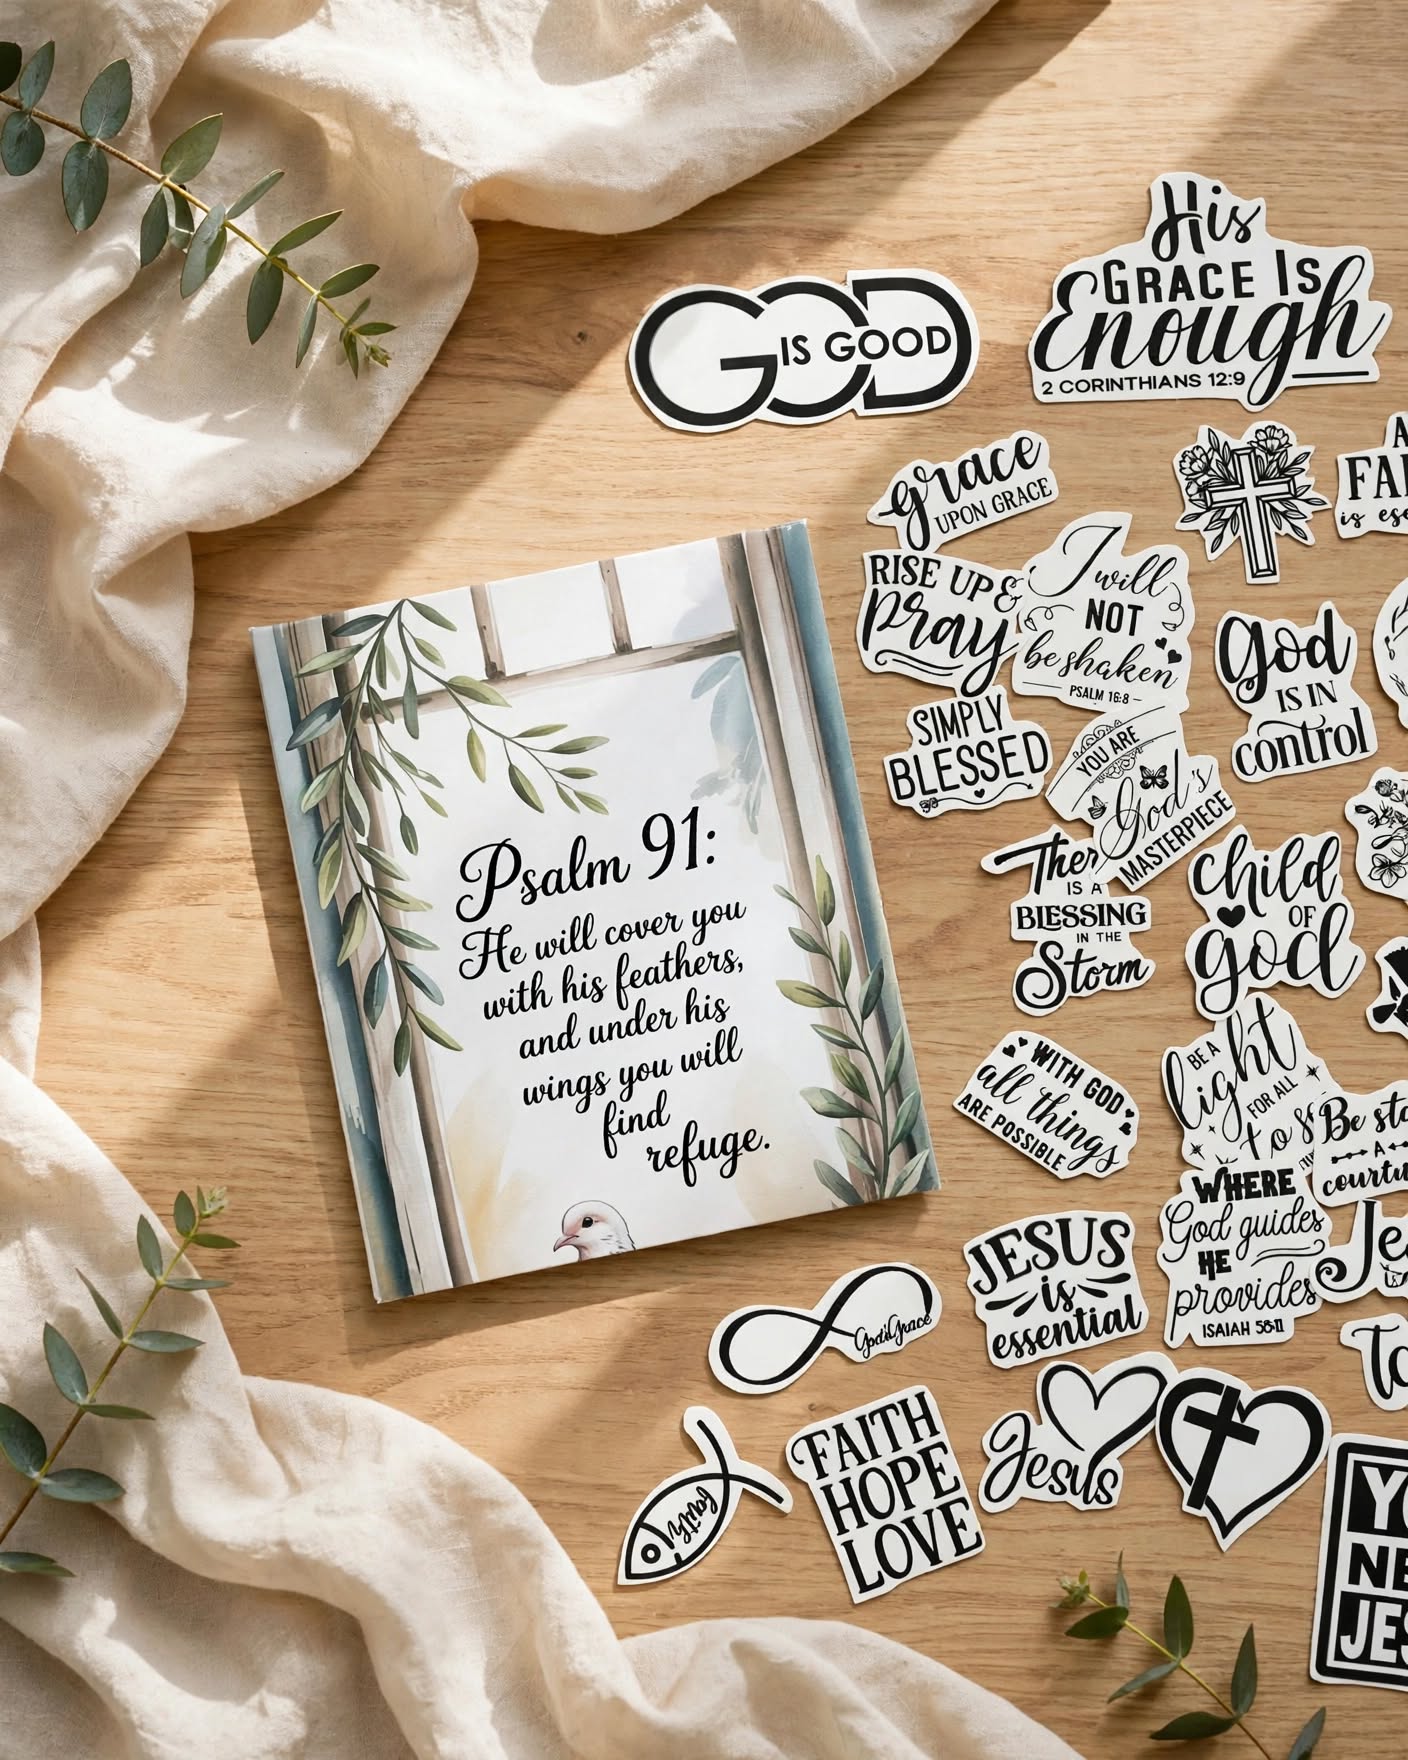 GOD
IS GOOD
His
GRACE IS
Enough
2 CORINTHIANS 12:9
grace
UPON GRACE
is
RISE UP &
pray
I will
NOT
be shaken
PSALM 16:8
god
IS IN
control
SIMPLY
BLESSED
YOU ARE
God's
MASTERPIECE
Psalm 91:
He will cover you
with his feathers,
and under his
wings you will
find
refuge.
IS A
BLESSING
IN THE
Storm
child
OF
god
WITH GOD
all things
ARE POSSIBLE
BE A
light
FOR ALL
to
Be
A
WHERE
God guides
HE
provides
ISAIAH 58:11
JESUS
is
essential
God's Grace
faith
FAITH
HOPE
LOVE
Jesus